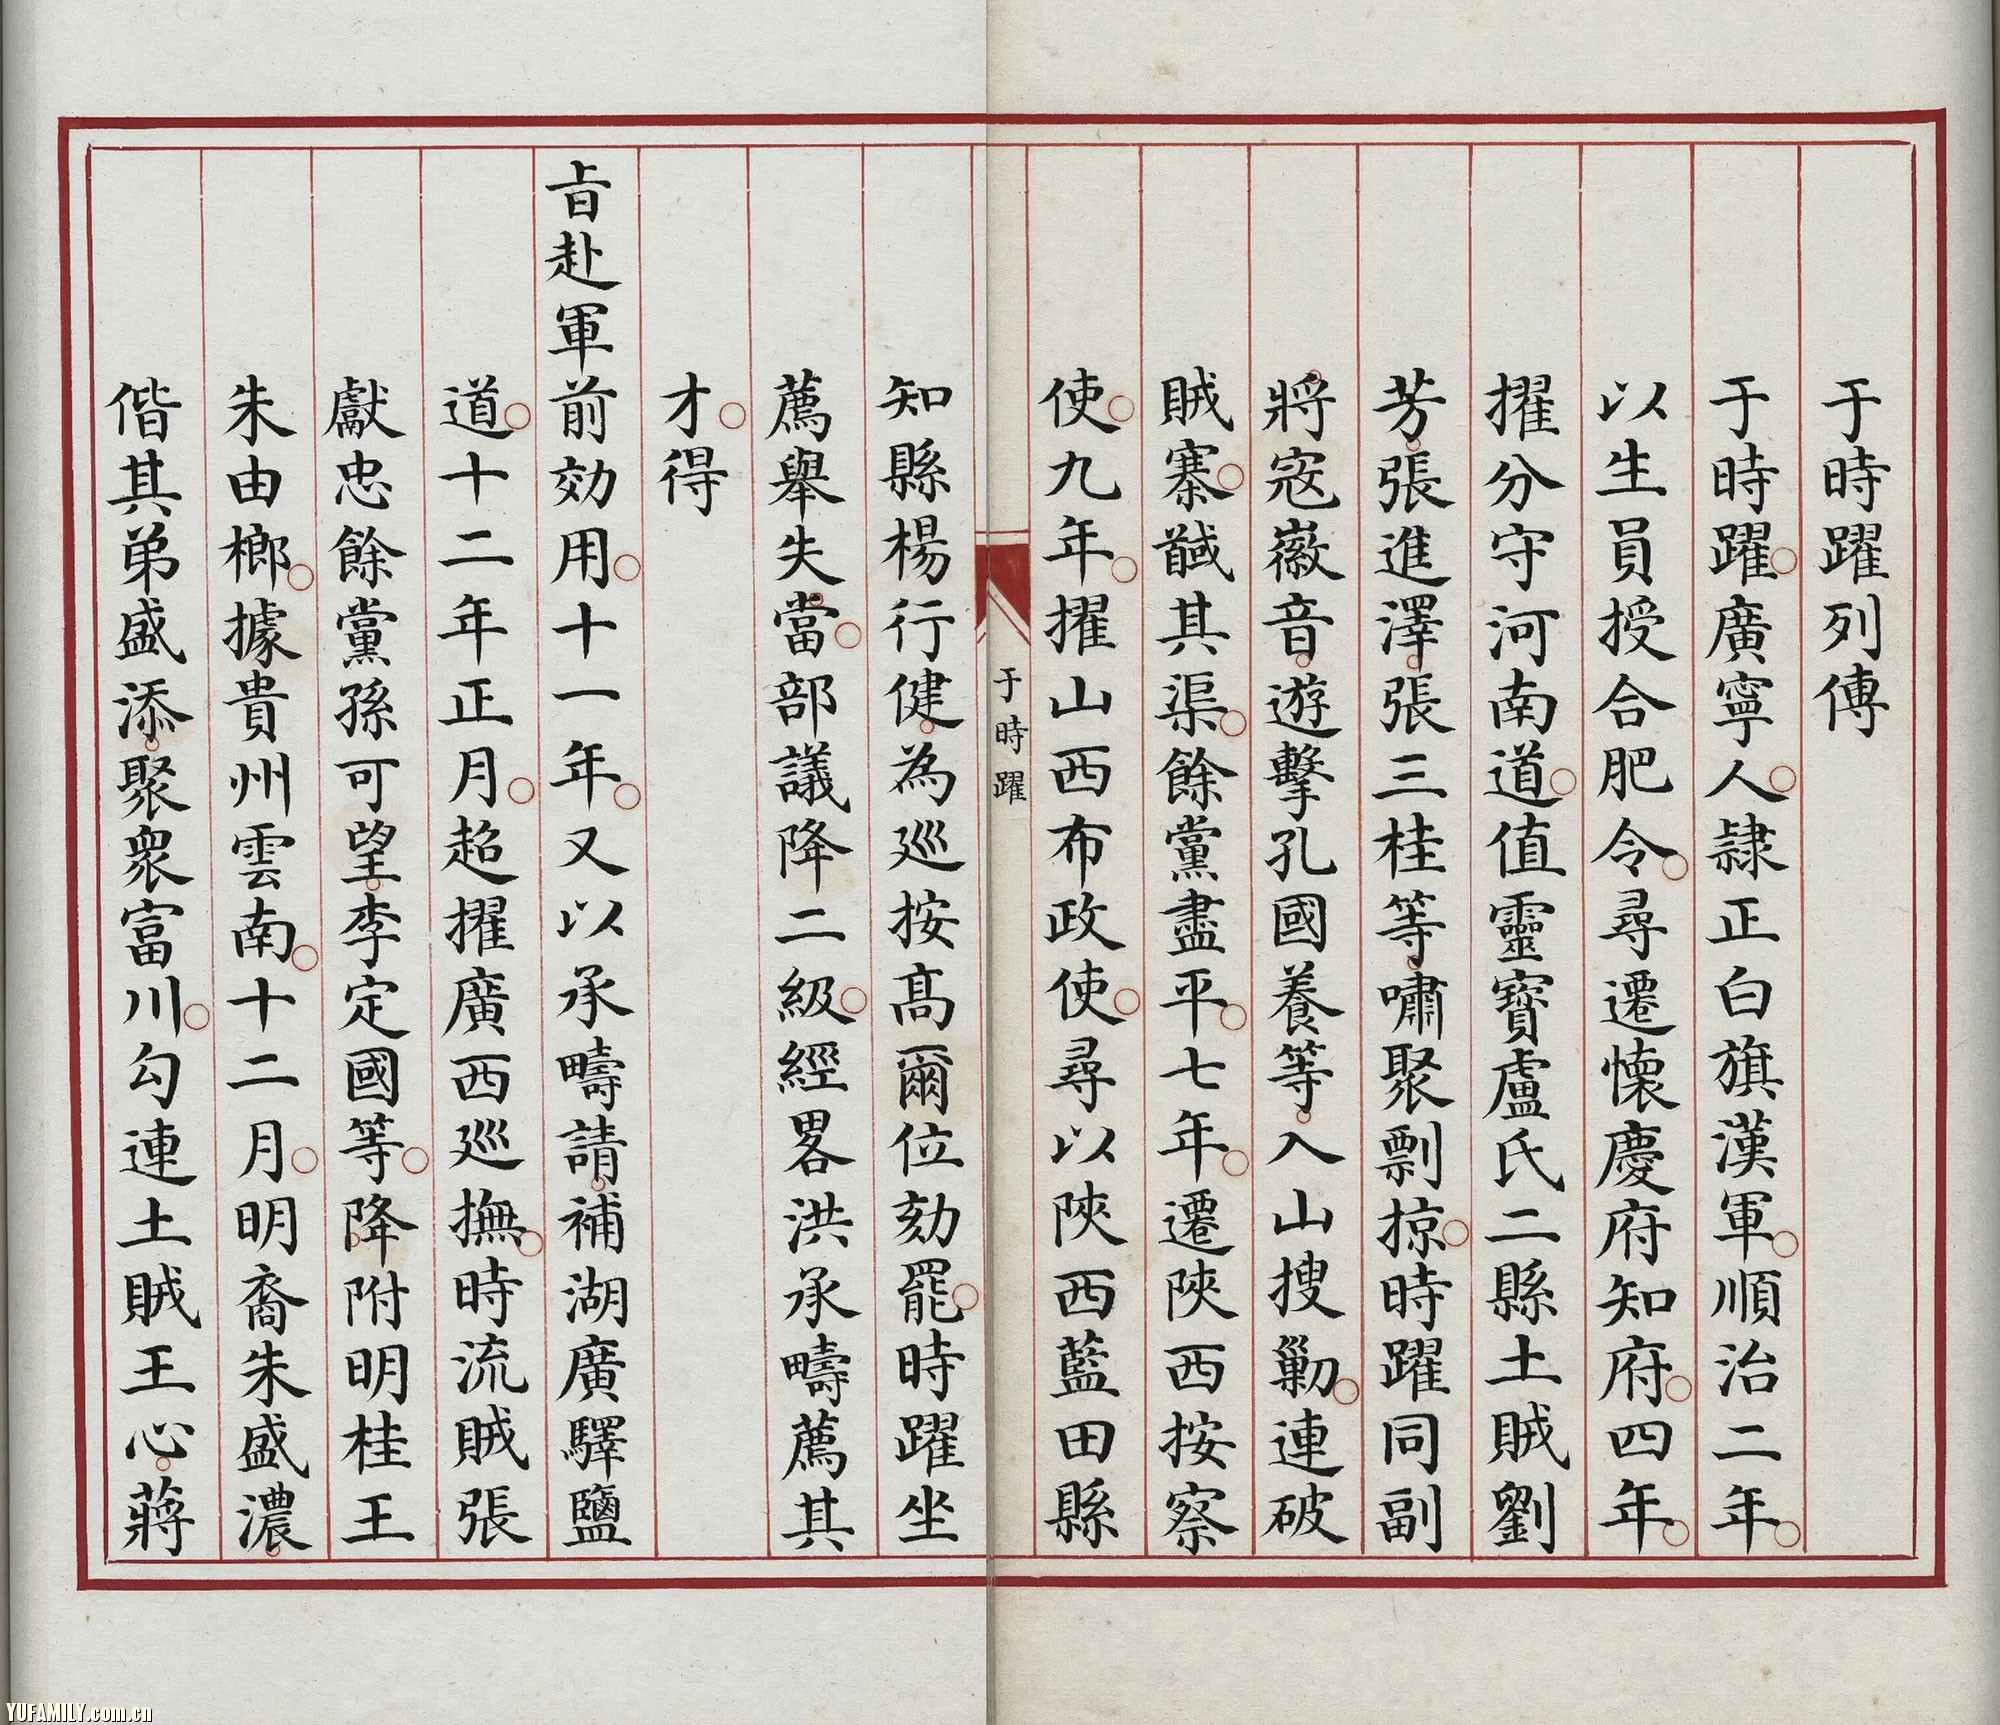 于時躍列傳
于時躍廣寧人隸正白旗漢軍順治二年
以生員授合肥令尋遷懷慶府知府四年
擢分守河南道值靈寶盧氏二縣土賊劉
芳張進澤張三桂等嘯聚剽掠時躍同副
將寇徽音遊擊孔國養等入山搜勦連破
賊寨馘其渠餘黨盡平七年遷陝西按察
使九年擢山西布政使尋以陝西藍田縣
于時躍
知縣楊行健為巡按高爾位劾罷時躍坐
薦舉失當部議降二級經畧洪承疇薦其
才得
旨赴軍前効用十一年又以承疇請補湖廣驛鹽
道十二年正月超擢廣西巡撫時流賊張
獻忠餘黨孫可望李定國等降附明桂王
朱由榔據貴州雲南十二月明裔朱盛濃
偕其弟盛添聚衆富川勾連土賊王心蔣
YUFAMILY.com.cn